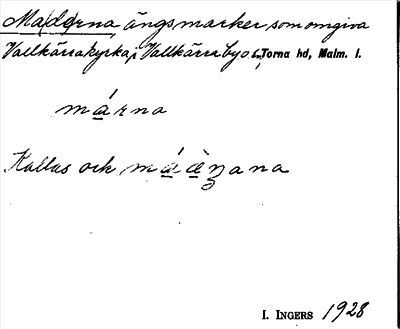 Ma(de)rna ängsmarker som omgiva
Vallkärra kyrka i Vallkärra by o. s., Torna hd, Malm. l.
má̱rna
Kallas och
I. INGERS 1928